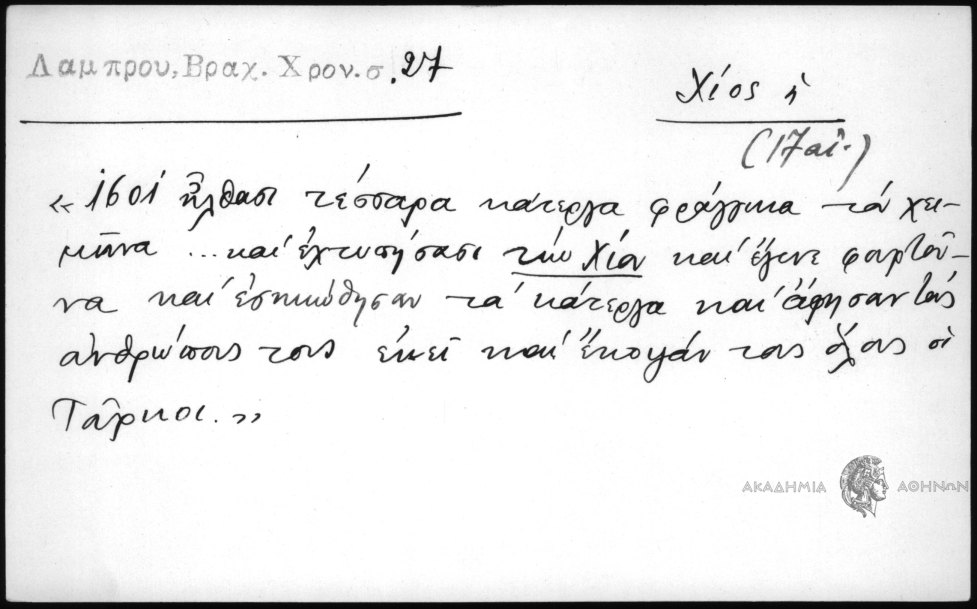 Λαμπρου, Βραχ. Χρον. σ. 27
Χίος ἡ
(17 αἰ.)
«1601 ἦλθασι τέσσαρα κάτεργα φράγγικα τὸν χει-
μῶνα ... καὶ ἐχτυπήσασι τὴν Χίον καὶ ἔγινε φουρτού-
να καὶ ἐσηκώθησαν τὰ κάτεργα καὶ ἄφησαν τοὺς
ἀνθρώπους τους ἐκεῖ καὶ ἔκοψάν τους ὅλους οἱ
Τοῦρκοι.»
ΑΚΑΔΗΜΙΑ ΑΘΗΝΩΝ